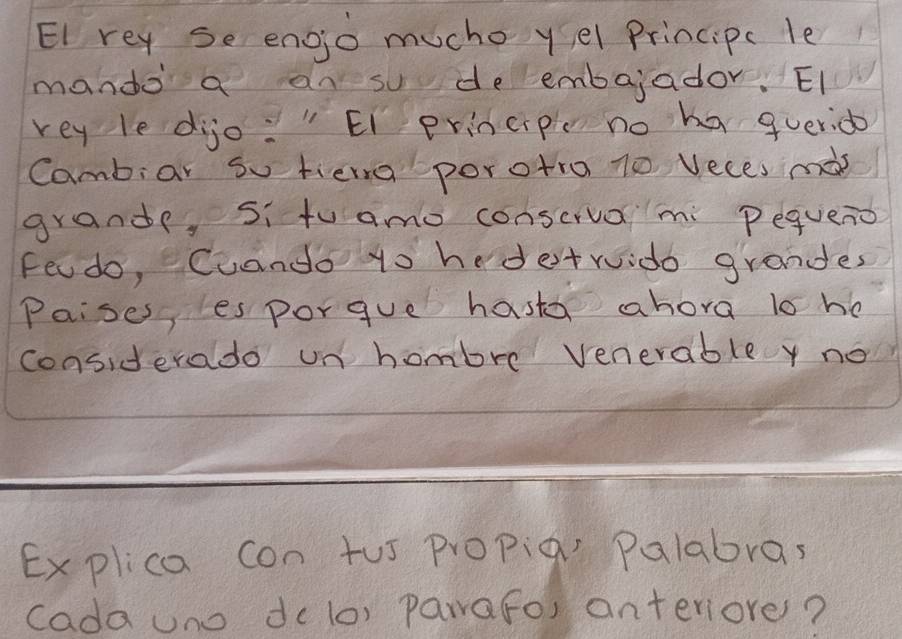 El rey se enojó mucho y el Principe le
mandó a an su de embajador. El
rey le dijo: "El principe no ha querido
Cambiar su tierra por otra 10 Veces más
grande, Si tu amo conserva mi Pequeño
Feudo, Cuando yo he destruido grandes
Paises, es por que hasta ahora lo he
considerado un hombre Venerable y no
Explica con tus propias Palabras
cada uno de los parrafos anteriores?